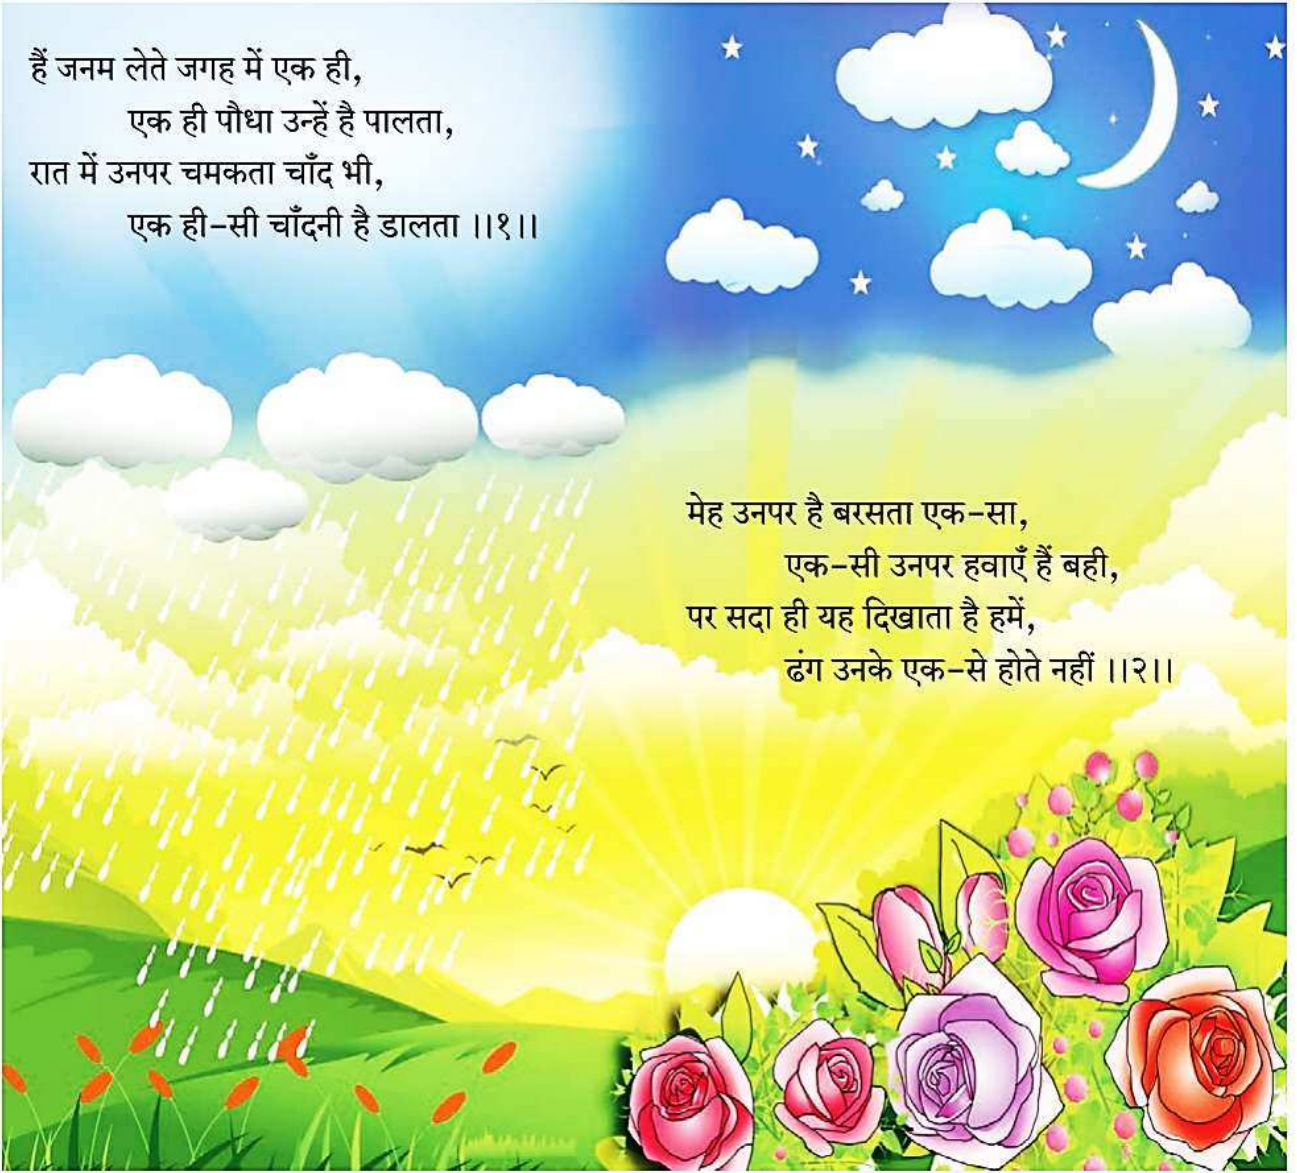 हैं जनम लेते जगह में एक ही,
एक ही पौधा उन्हें है पालता,
रात में उनपर चमकता चाँद भी,
एक ही-सी चाँदनी है डालता ।।१।।
मेह उनपर है बरसता एक-सा,
एक-सी उनपर हवाएँ हैं बही,
पर सदा ही यह दिखाता है हमें,
ढंग उनके एक-से होते नहीं ।।२।।